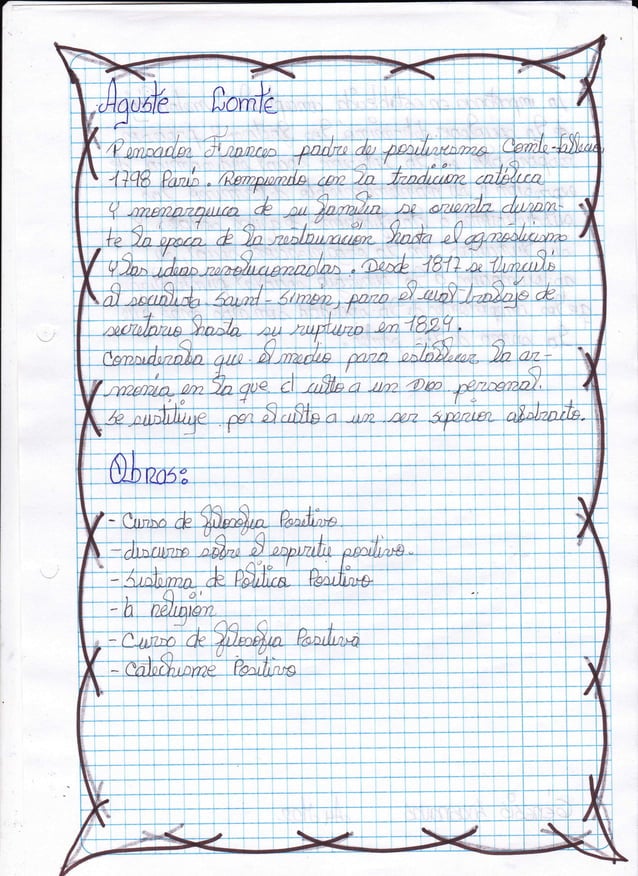 Aguste Comte
Pensador Frances padre de positivismo Comte-fallecio
1798 París. Rompiendo con la tradición católica
Y monarquica de su familia se orienta duran-
te la época de la restauración hasta el agnosticismo
Y las ideas revolucionadas. Desde 1817 se Vinculó
al socialista Saint-Simon, para el cual trabajo de
secretario hasta su ruptura en 1824.
Consideraba que el medio para establecer la ar-
monia en la que el culto a un Dios personal.
Se sustituye por el culto a un ser superior abstracto.
Obras:
- Curso de filosofia Positivo.
- discurso sobre el espiritu positivo.
- Sistema de Politica Positivo
- la religión
- Curso de filosofia Positiva
- Catechisme Positivo